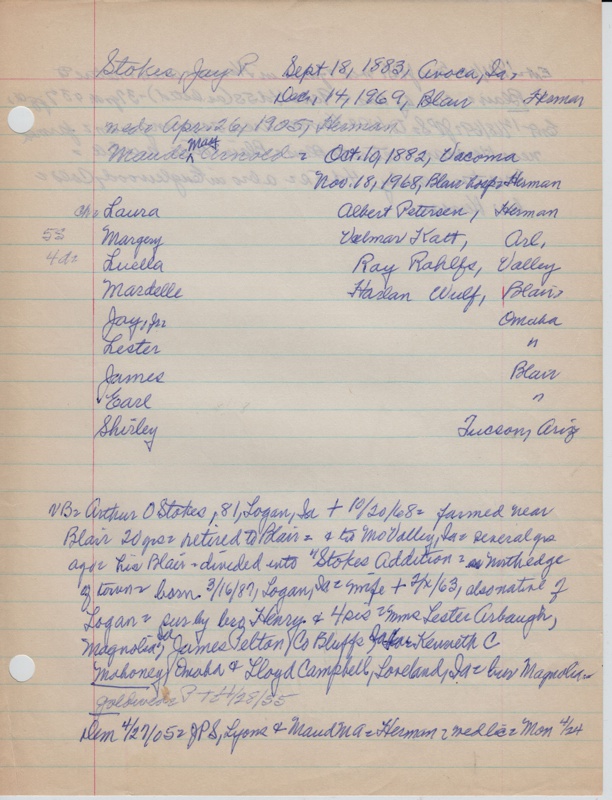 Stokes, Jay P. Sept. 18, 1883, Avoca, Ia.
Dec, 14, 1969, Blair Herman
med= Apr. 26, 1905, Herman
Maude May Arnold = Oct. 10, 1882, Vacoma
Nov. 18, 1968, Blair hosp= Herman
Ch= Laura Albert Petersen, Herman
5s Margery Valmar Katt, Arl,
4d= Luella Ray Rahlfs, Valley
Mardelle Harlan Wulf, Blair
Jay, Jr Omaha
Lester "
James Blair
Earl "
Shirley Tucson, Ariz
VB= Arthur O Stokes, 81, Logan, Ia + 10/20/68 = farmed near
Blair 20 yrs = retired to Blair = & to Mo Valley, Ia = several yrs
ago = his Blair - divided into "Stokes Addition = on north edge
of town = born 3/16/87, Logan, Ia = wife + /63, also native of
Logan = sur by bro Henry & 4 sis = mms Lester Arbaugh,
Magnolia, James Pelton, Co Bluffs, Kenneth C
Mahoney, Omaha & Lloyd Campbell, Loveland, Ia = bur Magnolia
P + 4/28/55
Dem 4/27/05 = JPS, Lyons & Maud MA = Herman = wed lic = Mon 4/24